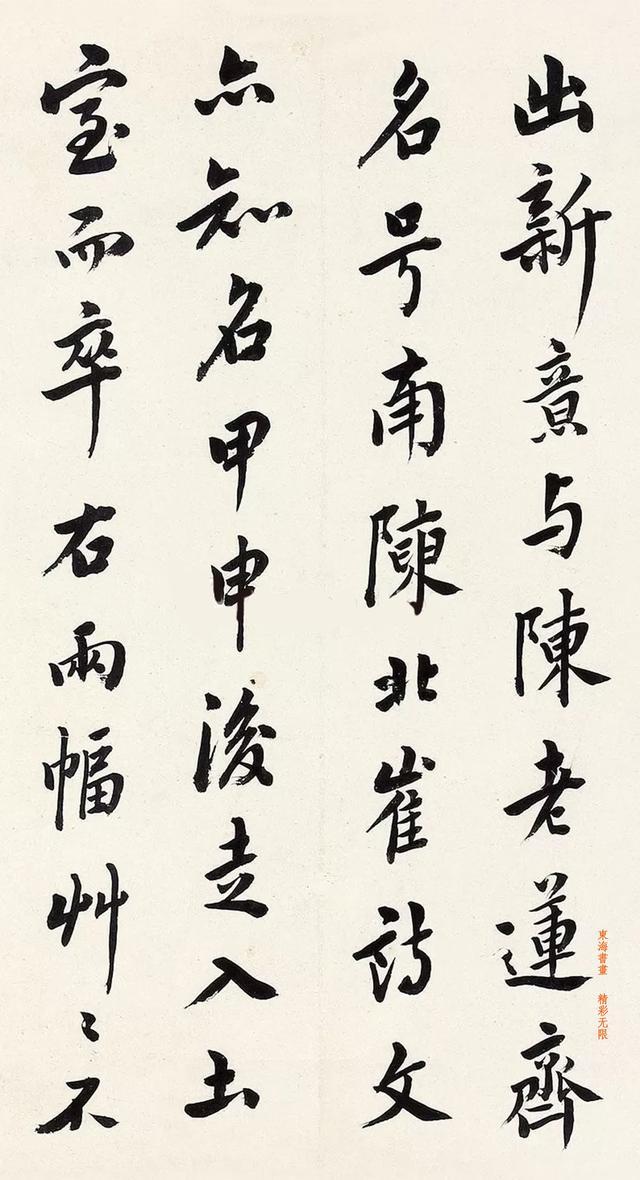 出新意与陳老蓮齊
名号南陳北崔詩文
亦知名甲申後走入土
室而卒右兩幅艸〻不
東海書畫 精彩无限